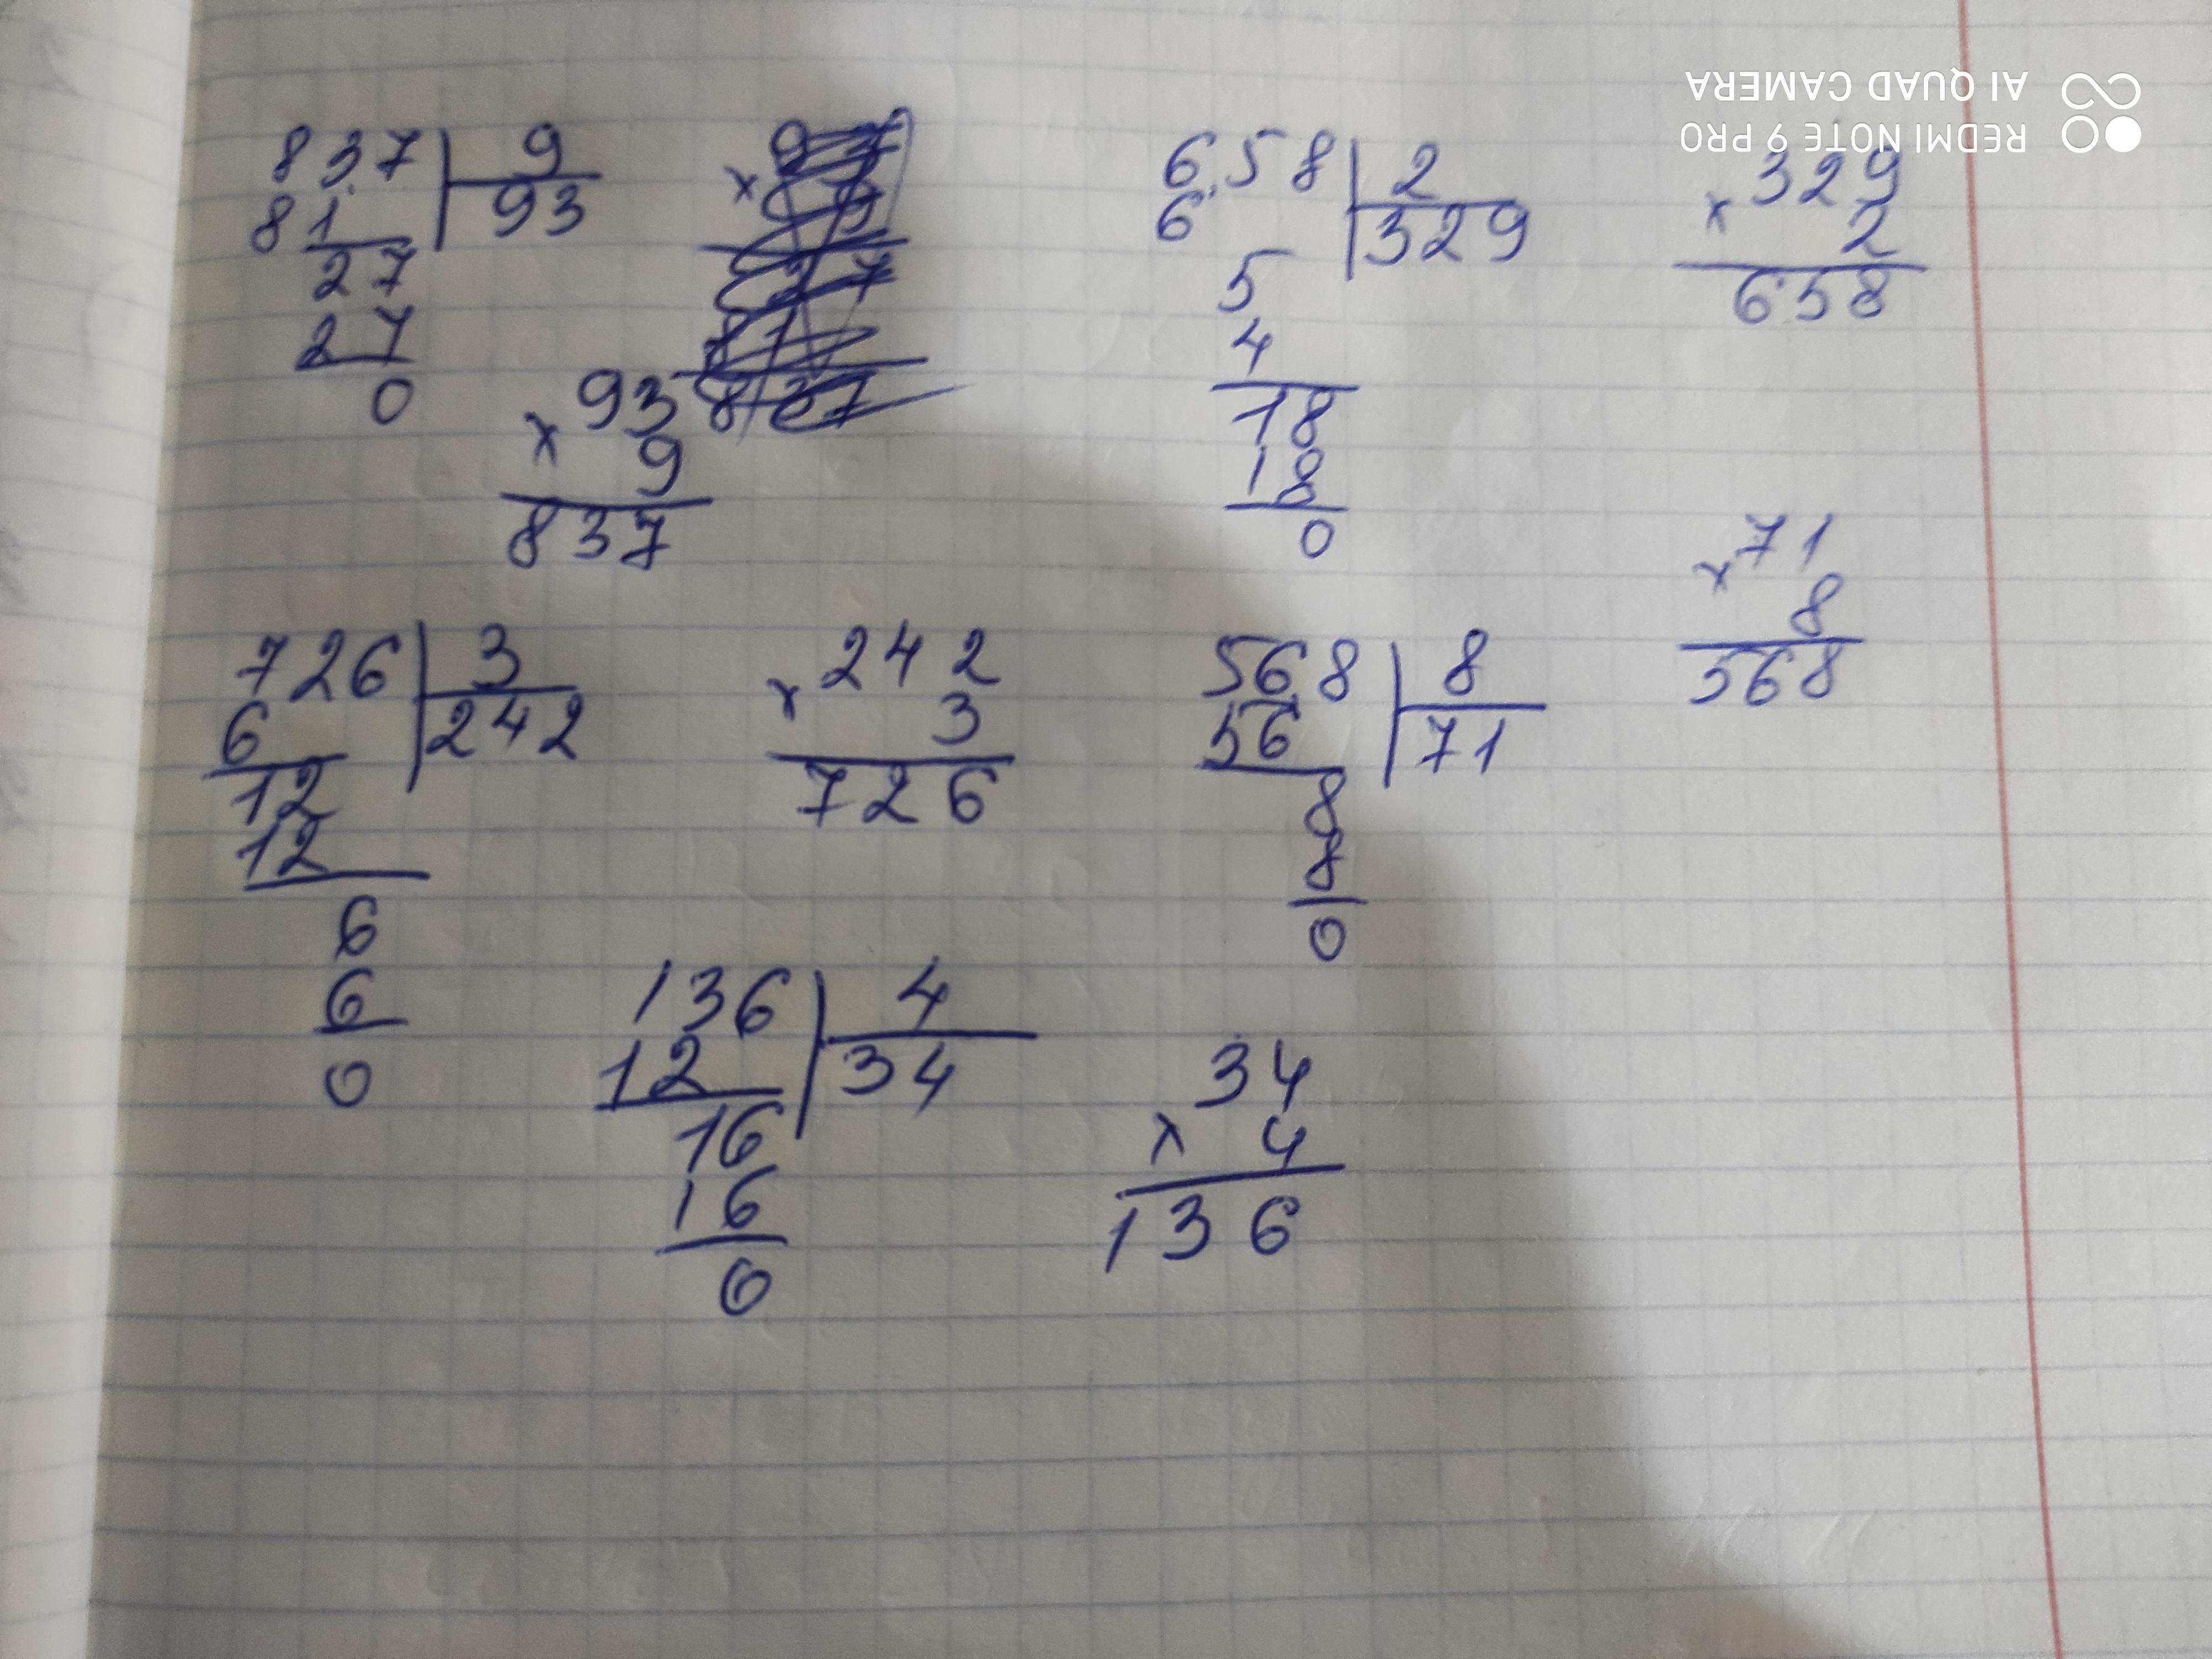 837 | 9
81 | 93
27
27
0
× 93
9
837
658 | 2
6 | 329
5
4
18
18
0
× 329
2
658
726 | 3
6 | 242
12
12
6
6
0
× 242
3
726
568 | 8
56 | 71
8
8
0
× 71
8
568
136 | 4
12 | 34
16
16
0
34
× 4
136
REDMI NOTE 9 PRO
AI QUAD CAMERA